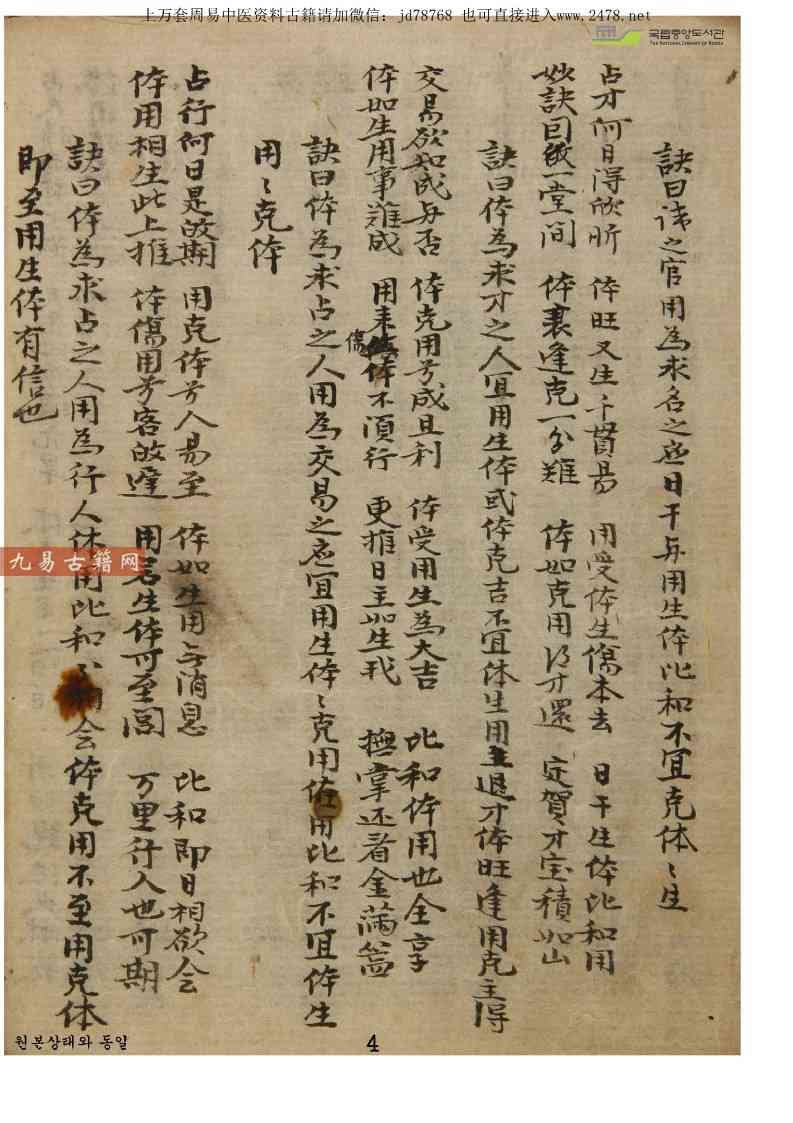 上万套周易中医资料古籍请加微信：jd78768 也可直接进入www.2478.net
국립중앙도서관
THE NATIONAL LIBRARY OF KOREA
訣曰 之官用為求名之 日干与用生体比和不宜克体〻生
占才何日得欣昕 体旺又生千貫易 用受体生傷本去 日干生体比和用
妙訣 一堂間 体衰逢克一分難 体如克用 才還 定賀 才宝積如山
訣曰体為求才之人宜用生体或体克吉不宜体生用主退才体旺逢用克主得
交易欲知成与否 体克用兮成且利 体受用生為大吉 比和体用也全享
体如生用事難成 用来傷体不須行 更推日主如生我 撫掌还看金滿
訣曰体為求占之人用為交易之 宜用生体〻克用 用比和不宜体生
用〻克体
占行何日是 期 用克体兮人易至 体如生用 消息 比和即日相欲会
体用相生此上推 体傷用兮客 達 用若生体可至 万里行人也可期
訣曰体為求占之人用為行人体用比和 相会体克用不至用克体
即至用生体有信也
九易古籍网
원본상태와 동일
4